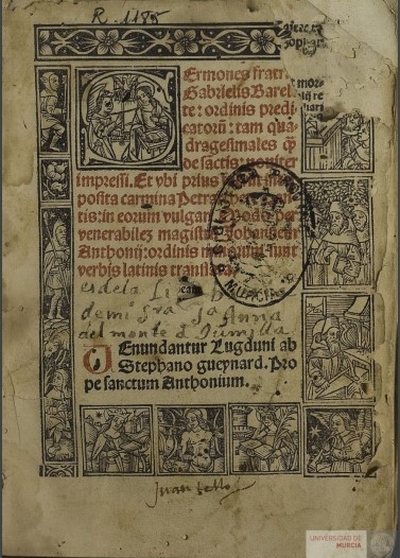 R. 1185
Sermones fratr
Gabrielis Barel
te: ordinis predi
catorū: tam qua
dragesimales q̄
de sāctis: nouiter
impressi. Et vbi prius
posita carmina Petrar
tis: in eorum vulgari
venerabilez magistr Johannem
Anthonij: ordinis minorum sunt
verbis latinis translata.
es de la Li
de mi Sra Sa Anna
del monte d Jumilla
MURCIA
Uenundantur Lugduni ab
Stephano gueynard. Pro
pe sanctum Anthonium.
Juan tello
UNIVERSIDAD DE
MURCIA